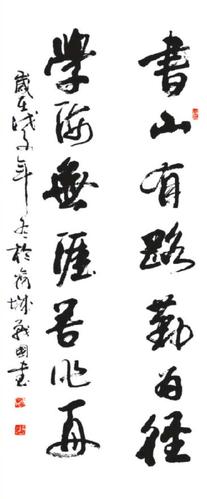 書山有路勤为徑
學海無涯苦作舟
歲在戊子年冬於城國書